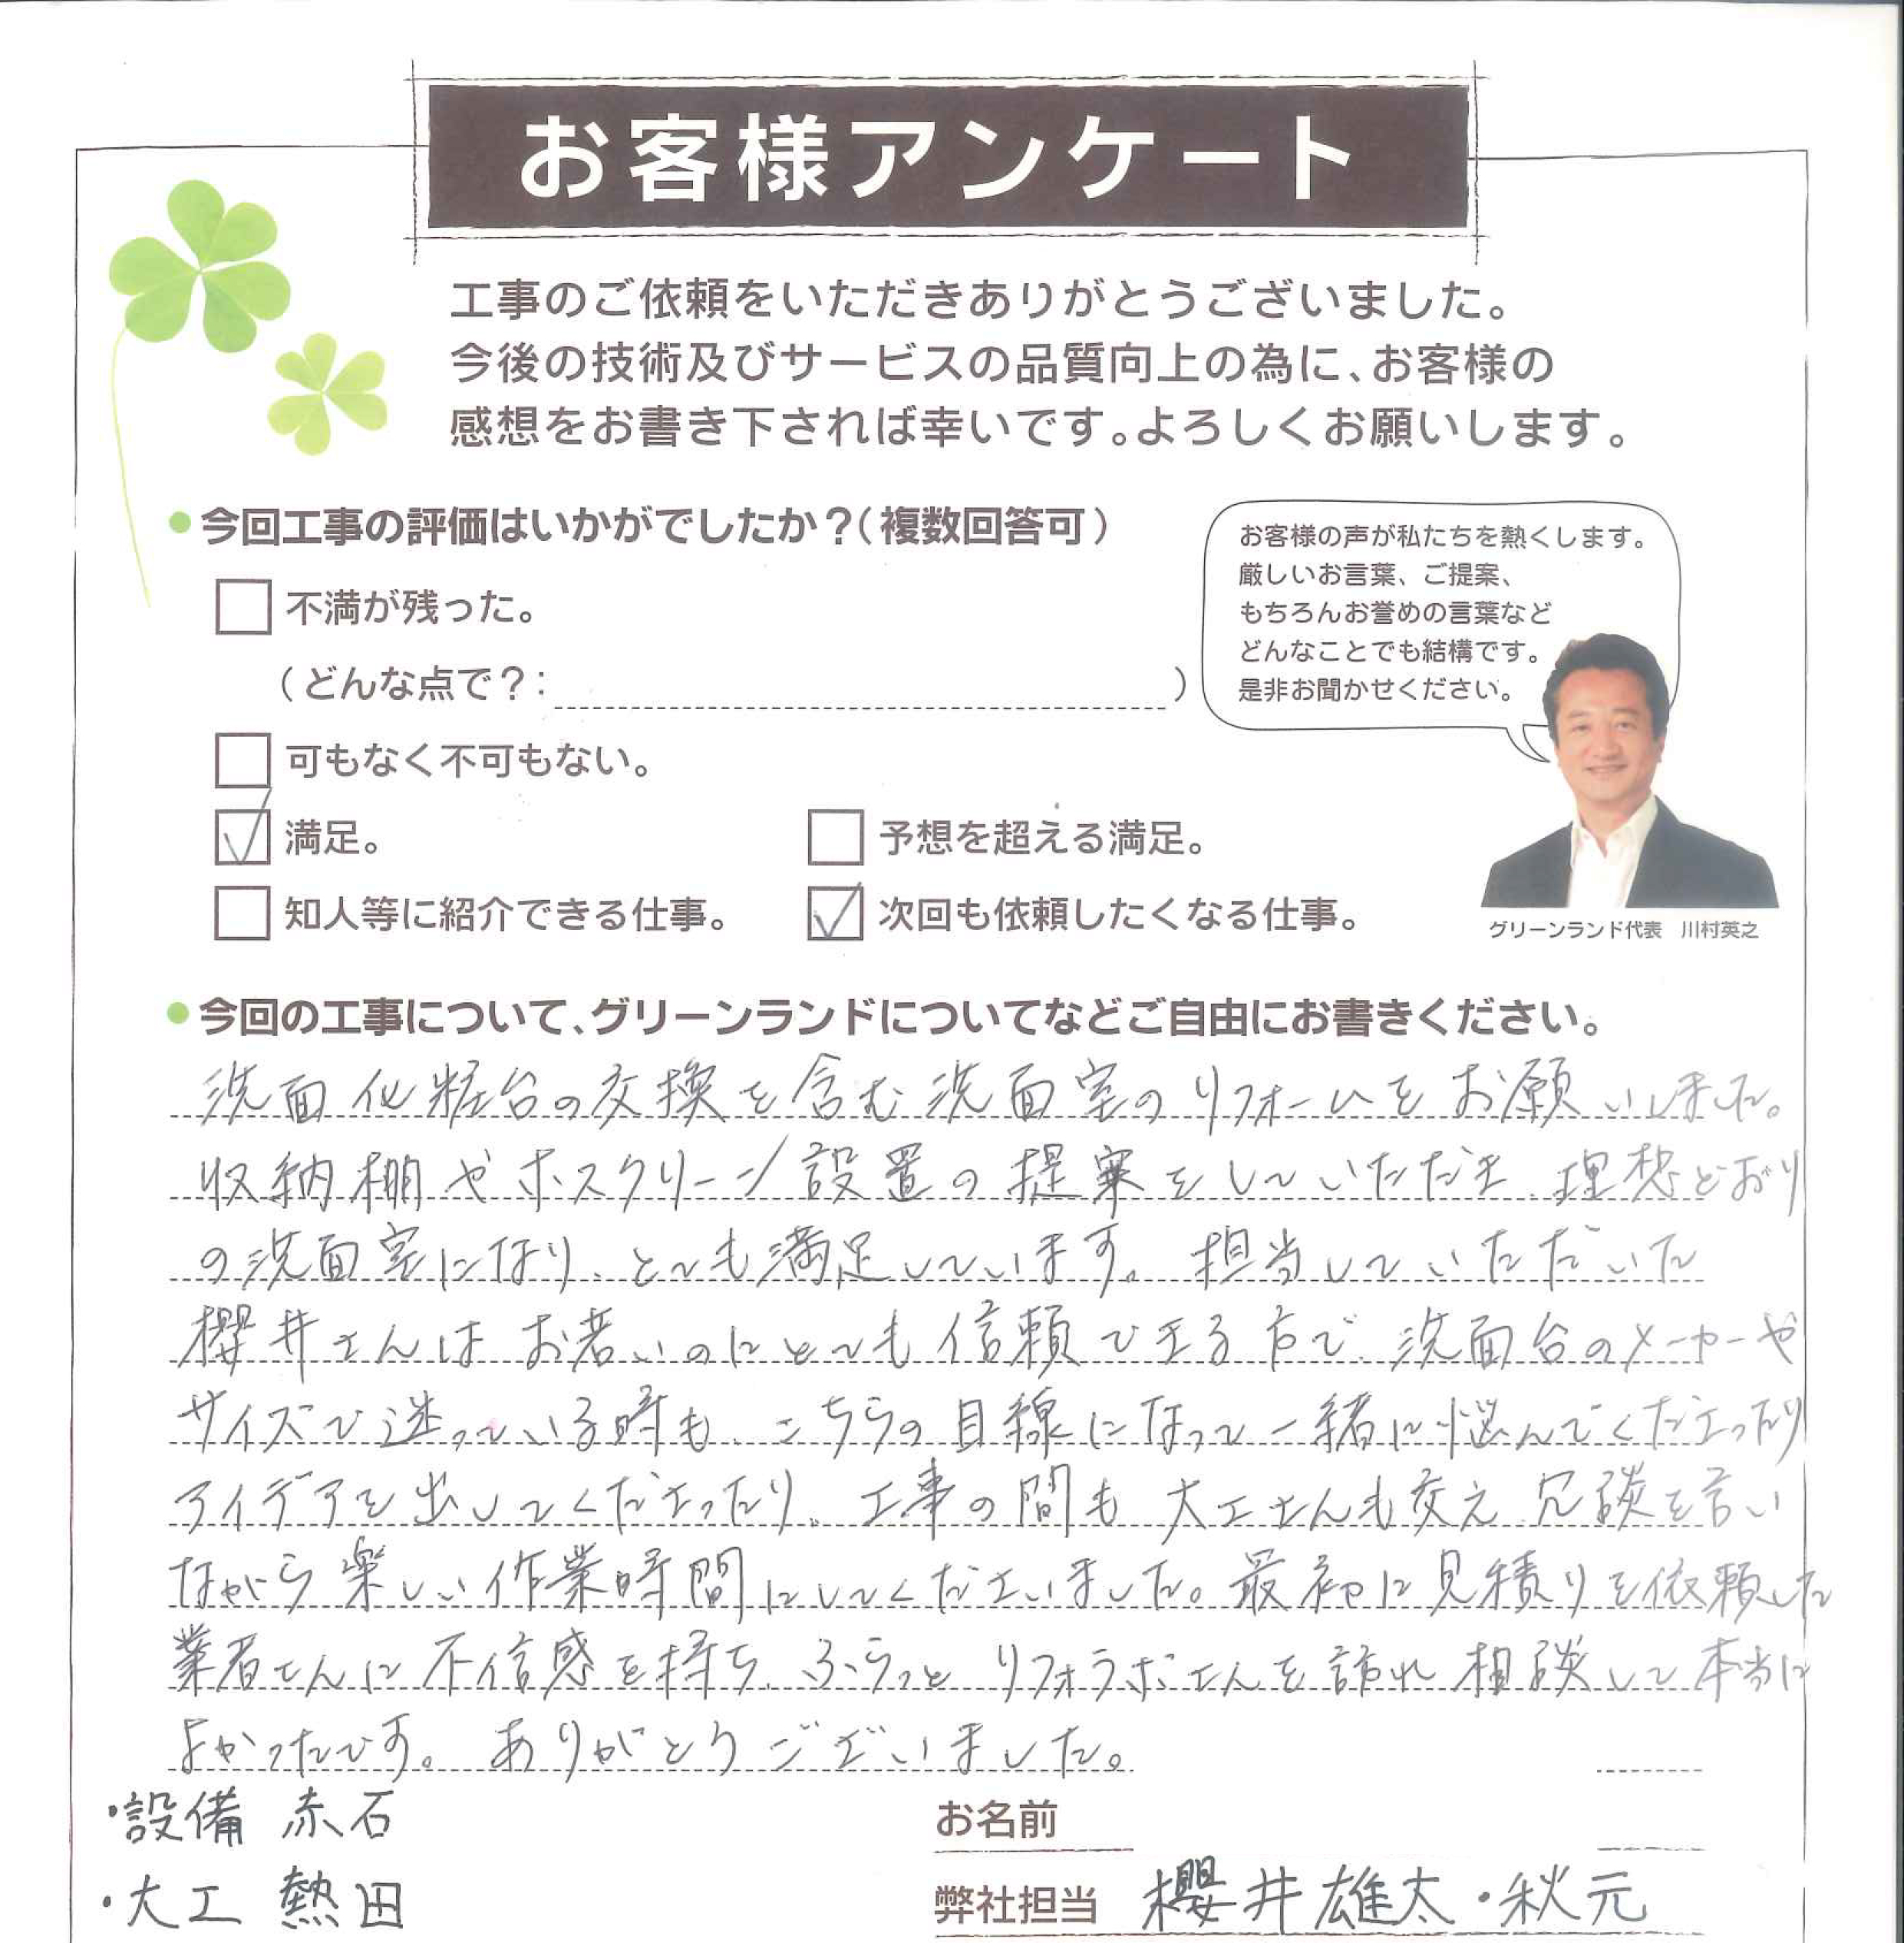 お客様アンケート
工事のご依頼をいただきありがとうございました。
今後の技術及びサービスの品質向上の為に、お客様の
感想をお書き下されば幸いです。よろしくお願いします。
●今回工事の評価はいかがでしたか？（複数回答可）
不満が残った。
（どんな点で？：　）
可もなく不可もない。
満足。
予想を超える満足。
知人等に紹介できる仕事。
次回も依頼したくなる仕事。
お客様の声が私たちを熱くします。
厳しいお言葉、ご提案、
もちろんお誉めの言葉など
どんなことでも結構です。
是非お聞かせください。
グリーンランド代表　川村英之
●今回の工事について、グリーンランドについてなどご自由にお書きください。
洗面化粧台の交換を含む洗面室のリフォームをお願いしました。
収納棚やホスクリーン設置の提案をしていただき、理想どおり
の洗面室になり、とても満足しています。担当していただいた
櫻井さんはお若いのにとても信頼できる方で、洗面台のメーカーや
サイズで迷っている時も、こちらの目線になって一緒に悩んでくださったり
アイデアを出してくださったり、工事の間も大工さんも交え、冗談を言い
ながら楽しい作業時間にしてくださいました。最初に見積りを依頼した
業者さんに不信感を持ち、ふらっとリフォラボさんを訪れ相談して本当に
よかったです。ありがとうございました。
・設備 赤石
・大工 熱田
お名前
弊社担当 櫻井雄太・秋元